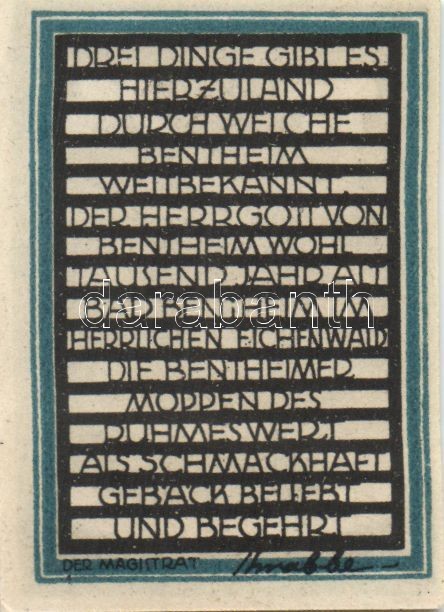 DREI DINGE GIBT ES
HIERZULAND
DURCH WELCHE
BENTHEIM
WEITBEKANNT.
DER HERRGOTT VON
BENTHEIM WOHL
TAUSEND JAHR ALT
BAD BENTHEIM IM
HERRLICHEN EICHENWALD
DIE BENTHEIMER
MOPPEN DES
RUHMES WERT
ALS SCHMACKHAFT
GEBÄCK BELIEBT
UND BEGEHRT
DER MAGISTRAT
darabanth